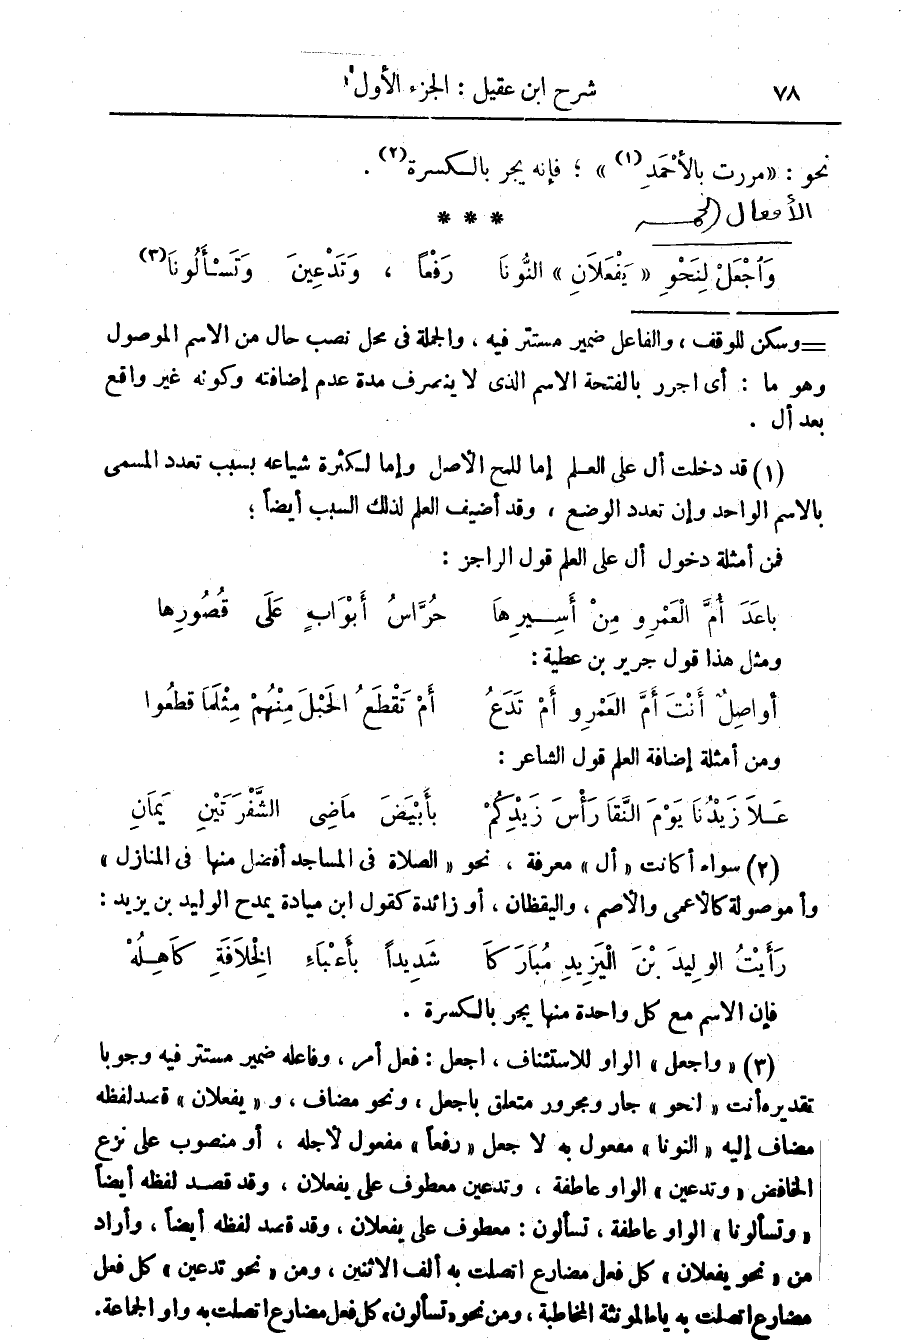 ٧٨
شرح ابن عقيل : الجزء الأول
نحو : « مررت بالأَحْمَدِ (١) » ؛ فإنه يجر بالكسرة (٢) .
الأفعال الخمسة
* * *
وَاجْعَلْ لِنَحْوِ « يَفْعَلَانِ » النُّونَا رَفْعاً ، وَتَدْعِينَ وَتَسْأَلُونَا (٣)
= وسكن للوقف ، والفاعل ضمير مستتر فيه ، والجملة فى محل نصب حال من الاسم الموصول
وهو ما : أى اجرر بالفتحة الاسم الذى لا ينصرف مدة عدم إضافته وكونه غير واقع
بعد أل .
(١) قد دخلت أل على العلم إما للمح الأصل وإما لكثرة شياعه بسبب تعدد المسمى
بالاسم الواحد وإن تعدد الوضع ، وقد أضيف العلم لذلك السبب أيضاً ؛
فمن أمثلة دخول أل على العلم قول الراجز :
باعَدَ أُمَّ الْعَمْرِو مِنْ أَسِيرِهَا حُرَّاسُ أَبْوَابٍ عَلَى قُصُورِها
ومثل هذا قول جرير بن عطية :
أواصِلٌ أَنْتَ أُمَّ العَمْرِو أَمْ تَدَعُ أَمْ تَقْطَعُ الْحَبْلَ مِنْهُمْ مِثْلَمَا قطعُوا
ومن أمثلة إضافة العلم قول الشاعر :
عَلاَ زَيْدُنَا يَوْمَ النَّقَا رَأْسَ زَيْدِكُمْ بأَبْيَضَ مَاضِى الشَّفْرَتَيْنِ يَمَانِ
(٢) سواء أكانت « أل » معرفة ، نحو « الصلاة فى المساجد أفضل منها فى المنازل »
وأ موصولة كالأعمى والأصم ، واليقظان ، أو زائدة كقول ابن ميادة يمدح الوليد بن يزيد :
رَأَيْتُ الوليدَ بْنَ الْيَزِيدِ مُبَارَكاَ شَدِيداً بأَعْبَاءِ الخِلَافَةِ كَاهِلُهْ
فإن الاسم مع كل واحدة منها يجر بالكسرة .
(٣) « واجعل » الواو للاستئناف ، اجعل : فعل أمر ، وفاعله ضمير مستتر فيه وجوبا
تقديره أنت « لنحو » جار ومجرور متعلق باجعل ، ونحو مضاف ، و « يفعلان » قصد لفظه
مضاف إليه « النونا » مفعول به لا جعل « رفعاً » مفعول لأجله ، أو منصوب على نزع
الخافض « وتدعين » الواو عاطفة ، وتدعين معطوف على يفعلان ، وقد قصد لفظه أيضاً
« وتسألونا » الواو عاطفة ، تسألون : معطوف على يفعلان ، وقد قصد لفظه أيضاً ، وأراد
من « نحو يفعلان » كل فعل مضارع اتصلت به ألف الاثنين ، ومن « نحو تدعين » كل فعل
مضارع اتصلت به ياء المؤنثة المخاطبة ، ومن نحو « تسألون » كل فعل مضارع اتصلت به واو الجماعة .